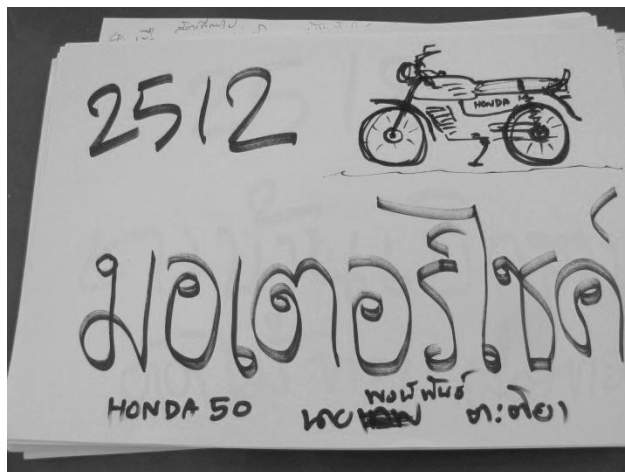 2512
HONDA
มอเตอร์ไซค์
HONDA 50 นาย พงษ์พันธ์ ตะติยา